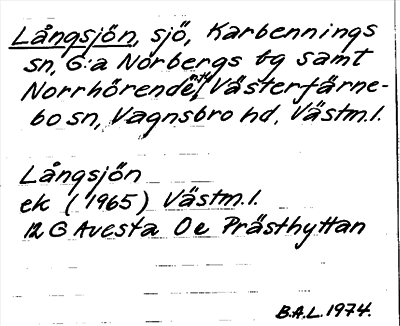 Långsjön, sjö, Karbennings
sn, G:a Norbergs bg samt
Norrhörende, Västerfärne-
bo sn, Vagnsbro hd, Västm.l.
Långsjön
ek (1965) Västm.l.
12 G Avesta Oe Prästhyttan
B.A.L. 1974.